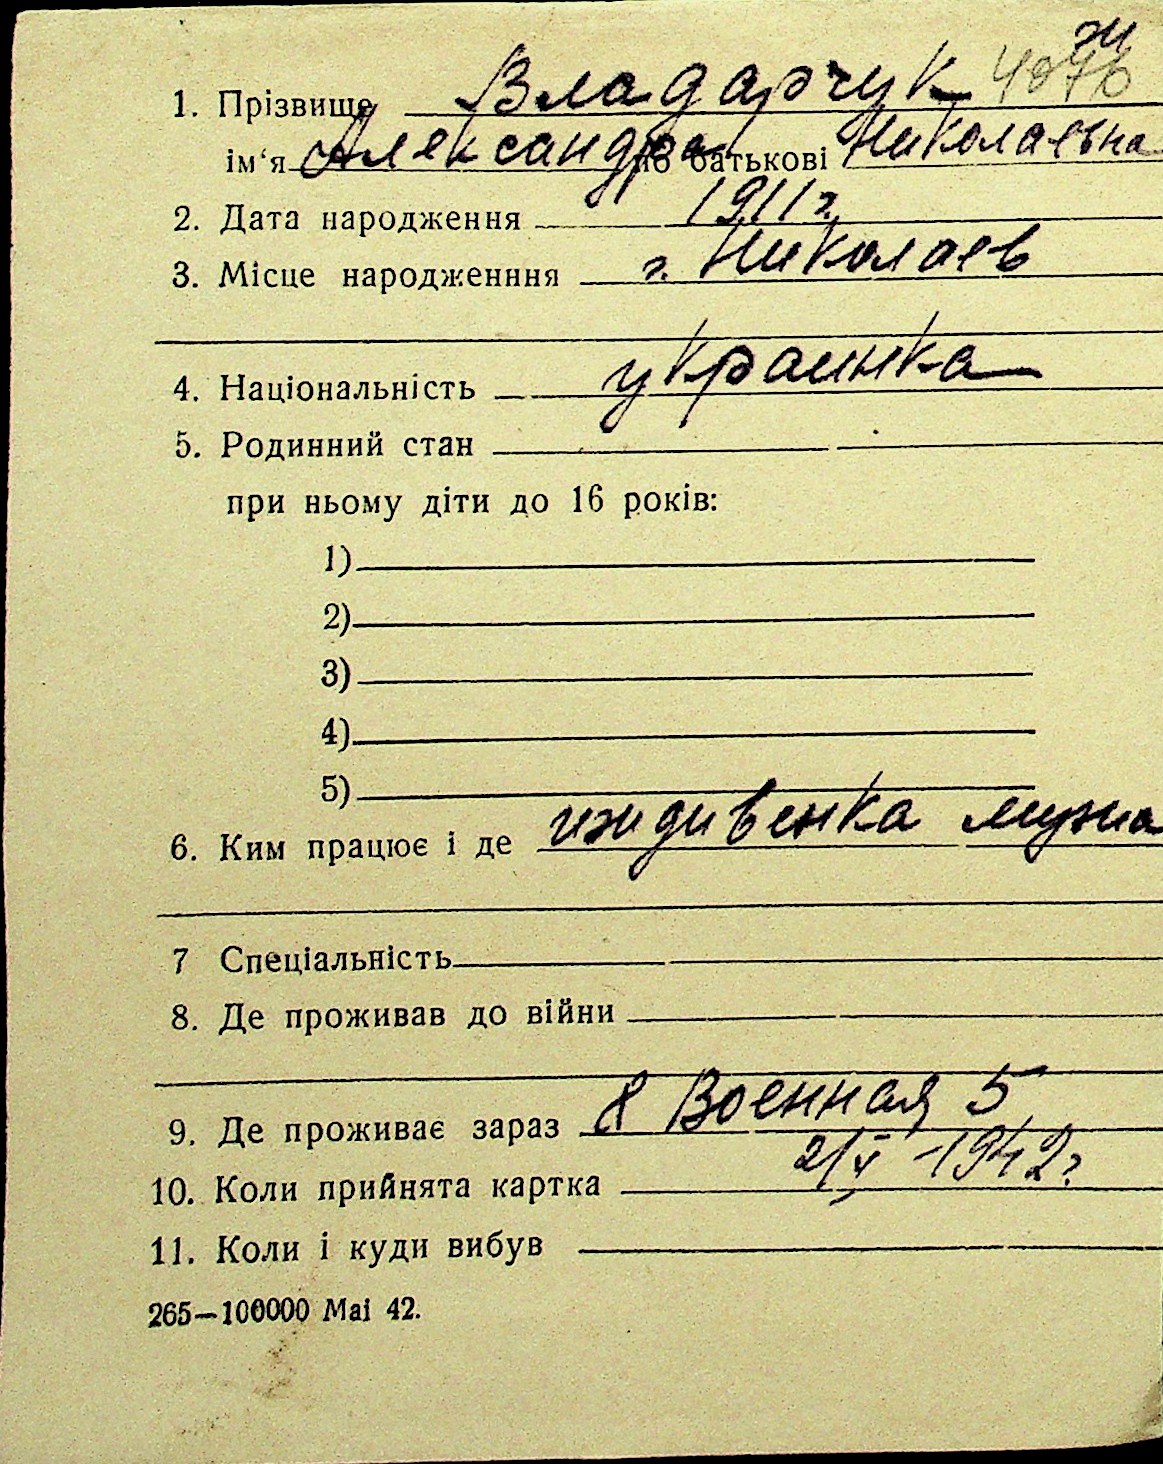 1. Прізвище Владарчук
ім‘я Александра по батькові Николаевна
2. Дата народження 1911 г.
3. Місце народженння г. Николаев
4. Національність украинка
5. Родинний стан
при ньому діти до 16 років:
1)
2)
3)
4)
5)
6. Ким працює і де иждивенка мужа
7 Спеціальність
8. Де проживав до війни
9. Де проживає зараз 8 Военная 5
10. Коли прийнята картка 2/V 1942 г.
11. Коли і куди вибув
265—100000 Маі 42.